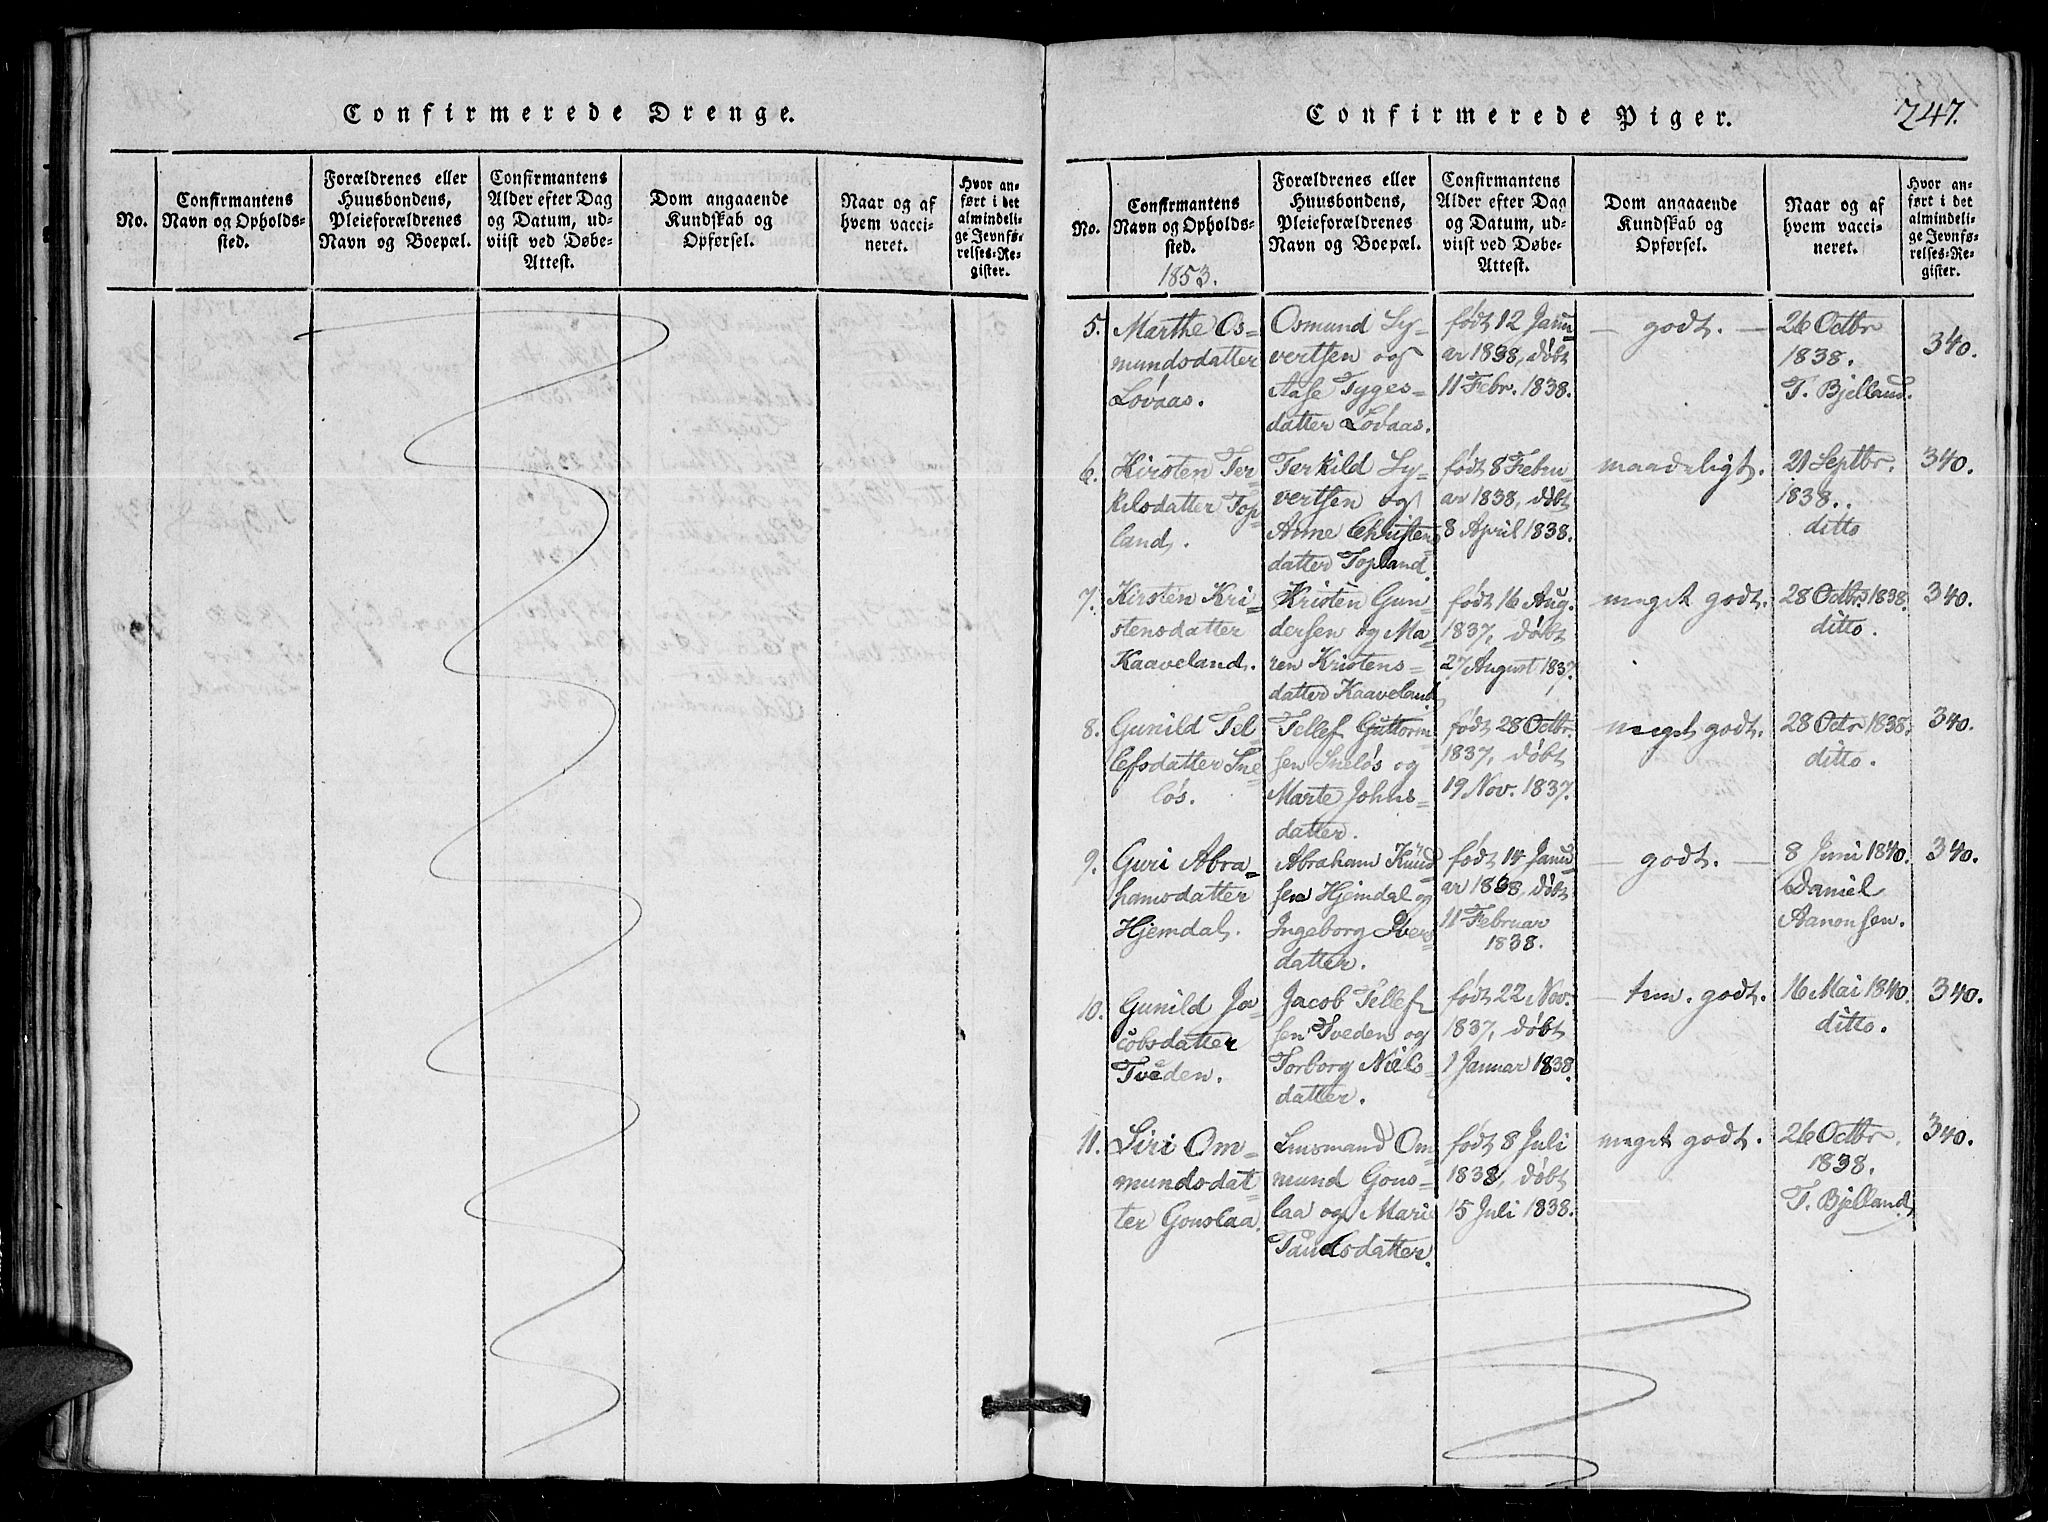 Confirmerede Drenge.
No.
Confirmantens
Navn og Opholds-
sted.
Forældrenes eller
Huusbondens,
Pleieforældrenes
Navn og Boepæl.
Confirmantens
Alder efter Dag
og Datum, ud-
viist ved Døbe-
Attest.
Dom angaaende
Kundskab og
Opførsel.
Naar og af
hvem vacci-
neret.
Hvor an-
ført i det
almindeli-
ge Jevnfø-
relses-Re-
gister.
Confirmerede Piger.
247.
No.
Confirmantens
Navn og Opholds-
sted.
1853.
Forældrenes eller
Huusbondens,
Pleieforældrenes
Navn og Boepæl.
Confirmantens
Alder efter Dag
og Datum, ud-
viist ved Døbe-
Attest.
Dom angaaende
Kundskab og
Opførsel.
Naar og af
hvem vacci-
neret.
Hvor an-
ført i det
almindeli-
ge Jevnfø-
relses-Re-
gister.
5.
Marthe Os=
mundsdatter
Løvaas.
Osmund Sy=
vertsen og
Aase Tyges=
datter Løvaas.
født 12 Janu
ar 1838, døbt
11 Febr. 1838.
— godt. —
26 Octbr
1838.
T. Bjelland.
340.
6.
Kirsten Ter=
kilsdatter Top=
land.
Terkild Sy=
vertsen og
Anne Christens
datter Topland.
født 8 Febru=
ar 1838, døbt
8 April 1838.
maadeligt.
21 Septbr.
1838.
ditto
340.
7.
Kirsten Kri=
stensdatter
Kaaveland.
Kristen Gun=
dersen og Ma=
ren Kristens=
datter Kaaveland.
født 16 Aug.
1837, døbt
27 August 1837.
meget godt.
28 Octbr 1838.
ditto.
340.
8.
Gunild Tel=
lefsdatter Sne=
løs.
Tellef Guttorm=
sen Sneløs og
Marte Johns=
datter.
født 28 Octbr.
1837, døbt
19 Nov. 1837.
meget godt.
28 Octr 1838.
ditto.
340.
9.
Guri Abra=
hamsdatter
Hjemdal.
Abraham Knud
sen Hjemdal og
Ingeborg Ivers
datter.
født 14 Janu
ar 1838, døbt
11 Februar
1838.
— godt. —
8 Juni 1840.
Daniel
Aanonsen.
340.
10.
Gunild Ja=
cobsdatter
Tveden.
Jacob Tellef
sen Tveden og
Torborg Niels=
datter.
født 22 Nov.
1837, døbt
1 Januar 1838.
— tem. godt.
16 Mai 1840.
ditto.
340.
11.
Siri Om=
mundsdat=
ter Gouslaa.
Lensmand Om=
mund Gous=
laa og Mari
datter.
født 8 Juli
1838, døbt
15 Juli 1838.
meget godt.
26 Octbr.
1838.
T. Bjelland
340.